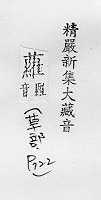 精嚴新集大藏音
蘿
羅音
(草部
P722)